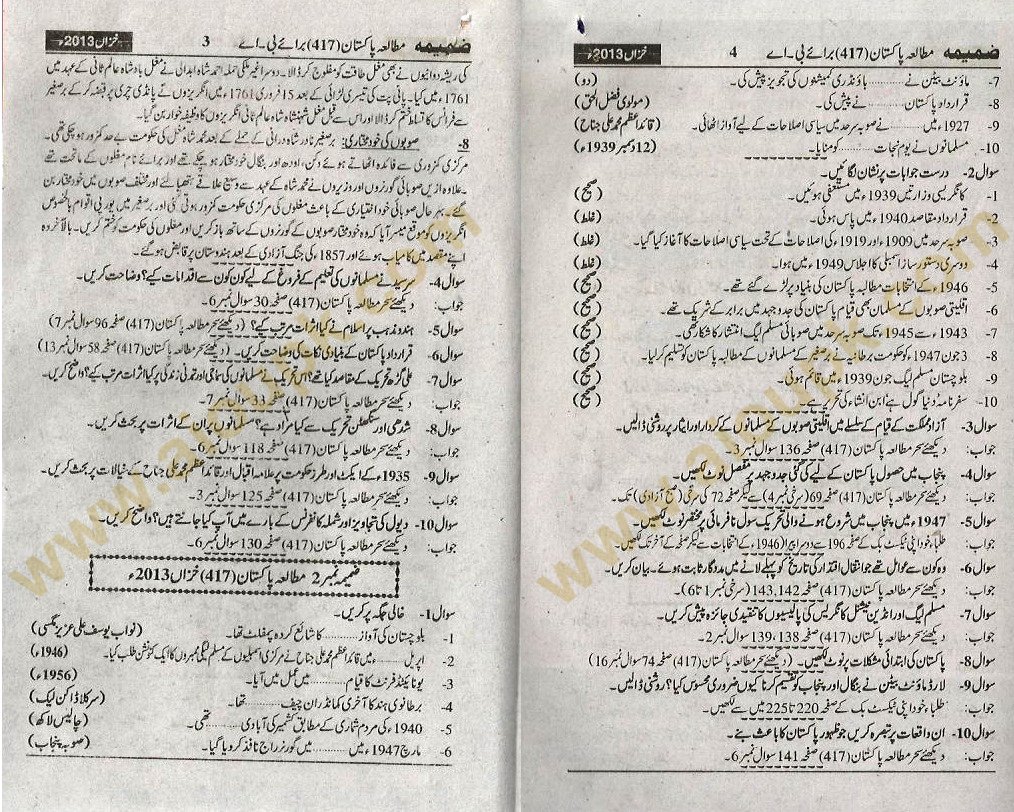 ضمیمہ مطالعہ پاکستان (417) برائے بی۔اے 3 خزاں 2013ء
کی ریشہ دوانیوں نے بھی مغل طاقت کو مفلوج کر ڈالا۔ دوسرا غیر ملکی حملہ احمد شاہ ابدالی نے مغل بادشاہ عالم ثانی کے عہد میں
1761ء میں کیا۔ پانی پت کی تیسری لڑائی کے بعد 15 فروری 1761ء میں انگریزوں نے پانڈی چری پر قبضہ کر کے برصغیر
سے فرانس کا تسلط ختم کر ڈالا اور اس سے قبل مغل شہنشاہ شاہ عالم ثانی انگریزوں کا وظیفہ خوار بن گیا۔
8- صوبوں کی خود مختاری: برصغیر نادر شاہ درانی کے حملے کے بعد محمد شاہ مغل کی حکومت بے حد کمزور ہو چکی تھی۔
مرکزی کمزوری سے فائدہ اٹھاتے ہوئے دکن، اودھ اور بنگال خود مختار ہو چکے تھے اور برائے نام مغلوں کے ماتحت تھے
۔علاوہ ازیں صوبائی گورنروں اور وزیروں نے محمد شاہ کے عہد سے وسیع علاقے ہتھیا لئے اور مختلف صوبوں میں خود مختار بن
گئے۔ بہر حال صوبائی خود اختیاری کے باعث مغلوں کی مرکزی حکومت کمزور ہوتی گئی اور برصغیر میں یورپی اقوام بالخصوص
انگریزوں کو موقع میسر آیا کہ وہ خود مختار صوبوں کے گورنروں کے ساتھ باز کریں اور مغلوں کی حکومت کو ختم کریں۔ بالآخر وہ
اپنے مقصد میں کامیاب ہوئے اور 1857ء کی جنگ آزادی کے بعد ہندوستان پر قابض ہو گئے۔
سوال 4- سرسید نے مسلمانوں کی تعلیم کے فروغ کے لیے کون کون سے اقدامات کیے؟ وضاحت کریں۔
جواب: دیکھئے سحر مطالعہ پاکستان (417) صفحہ 30 سوال نمبر 6۔
سوال 5- ہندو مذہب پر اسلام نے کیا اثرات مرتب کیے؟ (دیکھئے سحر مطالعہ پاکستان (417) صفحہ 96 سوال نمبر 7)
سوال 6- قرارداد پاکستان کے بنیادی نکات کی وضاحت کریں۔ (دیکھئے سحر مطالعہ پاکستان (417) صفحہ 58 سوال نمبر 13)
سوال 7- علی گڑھ تحریک کے مقاصد کیا تھے؟ اس تحریک نے مسلمانوں کی سماجی اور تمدنی زندگی پر کیا اثرات مرتب کیے؟ واضح کریں۔
جواب: دیکھئے سحر مطالعہ پاکستان (417) صفحہ 33 سوال نمبر 7۔
سوال 8- شدھی اور سنگھٹن تحریک سے کیا مراد ہے؟ مسلمانوں پر ان کے اثرات پر بحث کریں۔
جواب: دیکھئے سحر مطالعہ پاکستان (417) صفحہ 118 سوال نمبر 6۔
سوال 9- 1935ء کے ایکٹ اور طرز حکومت پر علامہ اقبال اور قائد اعظم محمد علی جناح کے خیالات پر بحث کریں۔
جواب: دیکھئے سحر مطالعہ پاکستان (417) صفحہ 125 سوال نمبر 3۔
سوال 10- ویول کی تجاویز اور شملہ کانفرنس کے بارے میں آپ کیا جانتے ہیں؟ واضح کریں۔
جواب: دیکھئے سحر مطالعہ پاکستان (417) صفحہ 130 سوال نمبر 6۔
ضمیمہ نمبر 2 مطالعہ پاکستان (417) خزاں 2013ء
سوال 1- خالی جگہ پر کریں۔
1- بلوچستان کی آواز ......... کا شائع کردہ پمفلٹ تھا۔ (نواب یوسف علی عزیز مگسی)
2- اپریل ......... ء میں قائد اعظم محمد علی جناح نے مرکزی اسمبلیوں کے مسلم لیگی ممبروں کا ایک کنونشن طلب کیا۔ (1946ء)
3- یونائیٹڈ فرنٹ کا قیام ......... میں عمل میں آیا۔ (1956ء)
4- برطانوی ہند کا آخری کمانڈر ان چیف ......... تھا۔ (سر کلاڈ آکن لیک)
5- 1940ء کی مردم شماری کے مطابق کشمیر کی آبادی ......... تھی۔ (چالیس لاکھ)
6- مارچ 1947ء میں ......... میں گورنر راج نافذ کر دیا گیا۔ (صوبہ پنجاب)
ضمیمہ مطالعہ پاکستان (417) برائے بی۔اے 4 خزاں 2013ء
7- ماؤنٹ بیٹن نے ......... باؤنڈری کمیشنوں کی تجویز پیش کی۔ (دو)
8- قرارداد پاکستان ......... نے پیش کی۔ (مولوی فضل الحق)
9- 1927ء میں ......... نے صوبہ سرحد میں سیاسی اصلاحات کے لیے آواز اٹھائی۔ (قائد اعظم محمد علی جناح)
10- مسلمانوں نے یوم نجات ......... کو منایا۔ (12 دسمبر 1939ء)
سوال 2- درست جوابات پر نشان لگائیں۔
1- کانگریسی وزارتیں 1939ء میں مستعفی ہوئیں۔ (صحیح)
2- قرارداد مقاصد 1940ء میں پاس ہوئی۔ (غلط)
3- صوبہ سرحد میں 1909ء اور 1919ء کی اصلاحات کے تحت سیاسی اصلاحات کا آغاز کیا گیا۔ (غلط)
4- دوسری دستور ساز اسمبلی کا اجلاس 1949ء میں ہوا۔ (غلط)
5- 1946ء کے انتخابات مطالبہ پاکستان کی بنیاد پر لڑے گئے تھے۔ (صحیح)
6- اقلیتی صوبوں کے مسلمان بھی قیام پاکستان کی جدوجہد میں برابر کے شریک تھے۔ (صحیح)
7- 1943ء سے 1945ء تک صوبہ سرحد میں صوبائی مسلم لیگ انتشار کا شکار تھی۔ (صحیح)
8- 3 جون 1947ء کو حکومت برطانیہ نے برصغیر کے مسلمانوں کے مطالبہ پاکستان کو تسلیم کر لیا۔ (صحیح)
9- بلوچستان مسلم لیگ جون 1939ء میں قائم ہوئی۔ (صحیح)
10- سفر نامہ دنیا گول ہے ابن انشاء کی تحریر ہے۔ (صحیح)
سوال 3- آزاد مملکت کے قیام کے سلسلے میں اقلیتی صوبوں کے مسلمانوں کے کردار اور ایثار پر روشنی ڈالیں۔
جواب: دیکھئے سحر مطالعہ پاکستان (417) صفحہ 136 سوال نمبر 3۔
سوال 4- پنجاب میں حصول پاکستان کے لیے کی گئی جدوجہد پر مفصل نوٹ لکھیں۔
جواب: دیکھئے سحر مطالعہ پاکستان (417) صفحہ 69 (سرخی نمبر 4) سے لیکر صفحہ 72 کی سرخی (صبح آزادی) تک۔
سوال 5- 1947ء میں پنجاب میں شروع ہونے والی تحریک سول نافرمانی پر مختصر نوٹ لکھیں۔
جواب: طلباء خود اپنی ٹیکسٹ بک کے صفحہ 196 سے دوسرا پیرا (1946ء کے انتخابات سے لیکر صفحہ کے آخر تک لکھیں۔
سوال 6- وہ کون سے عوامل تھے جو انتقال اقتدار کی تاریخ کو پہلے لانے میں مددگار ثابت ہوئے۔ بیان کریں۔
جواب: دیکھئے سحر مطالعہ پاکستان (417) صفحہ 142، 143 (سرخی نمبر 1 تا 6)۔
سوال 7- مسلم لیگ اور انڈین نیشنل کانگریس کی پالیسیوں کا تنقیدی جائزہ پیش کریں۔
جواب: دیکھئے سحر مطالعہ پاکستان (417) صفحہ 138، 139 سوال نمبر 2۔
سوال 8- پاکستان کی ابتدائی مشکلات پر نوٹ لکھیں۔ (دیکھئے سحر مطالعہ پاکستان (417) صفحہ 74 سوال نمبر 16)
سوال 9- لارڈ ماؤنٹ بیٹن نے بنگال اور پنجاب کو تقسیم کرنا کیوں ضروری محسوس کیا؟ روشنی ڈالیں۔
جواب: طلباء خود اپنی ٹیکسٹ بک کے صفحہ 220 تا 225 میں سے لکھیں۔
سوال 10- ان واقعات پر تبصرہ کریں جو ظہور پاکستان کا باعث بنے۔
جواب: دیکھئے سحر مطالعہ پاکستان (417) صفحہ 141 سوال نمبر 6۔